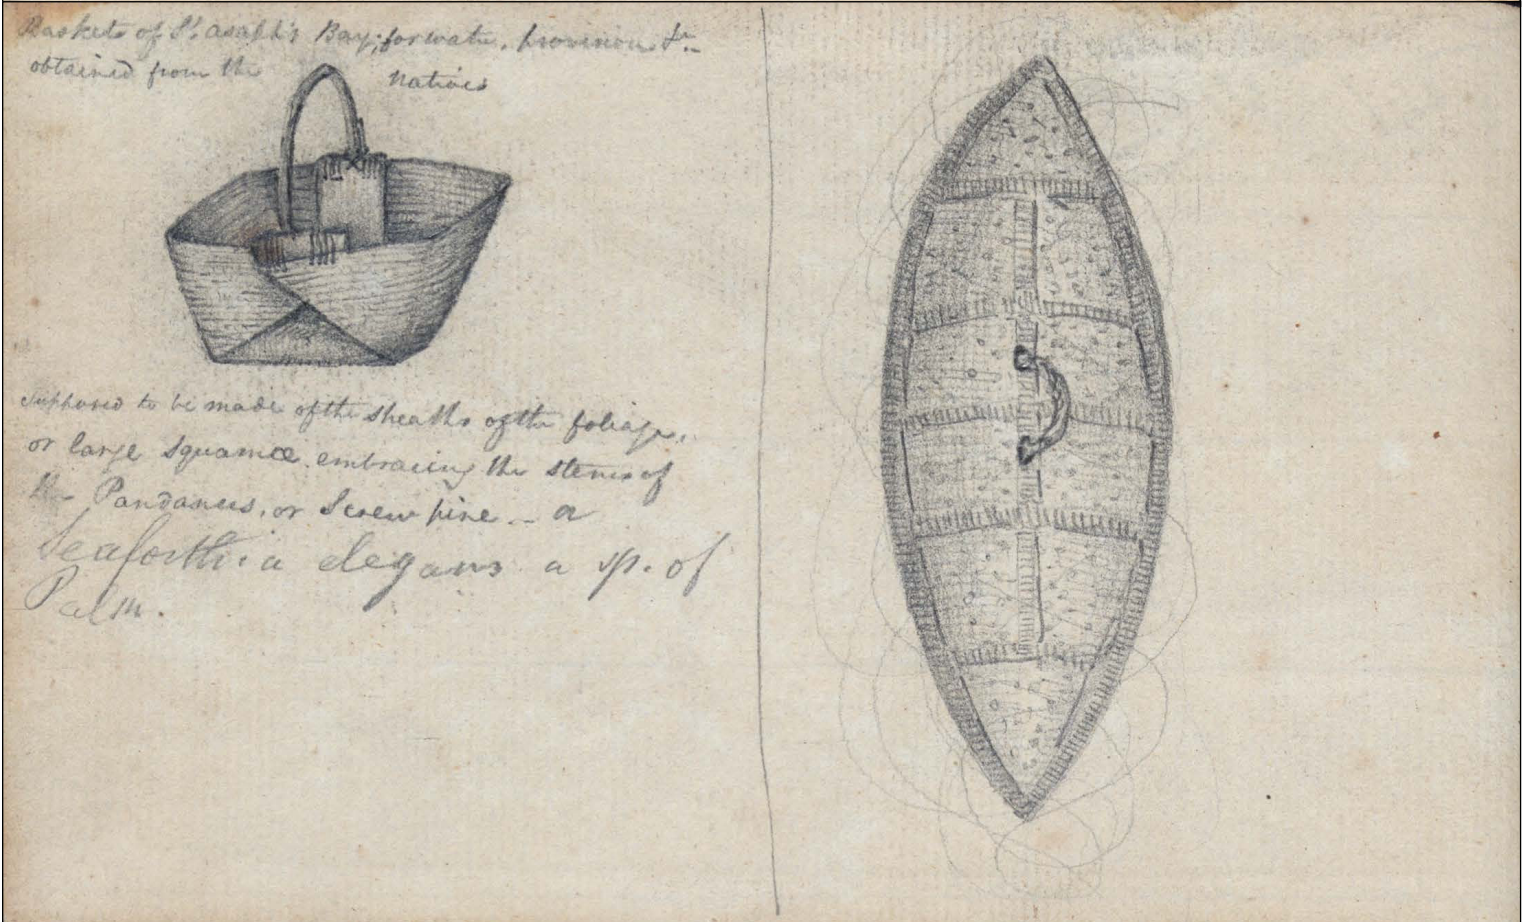 Baskets of St. Asaph's Bay; for water, provisions &c.
obtained from the natives
supposed to be made of the sheaths of the foliage,
or large squamæ embracing the stems of
the Pandanus, or Screw pine - a
Seaforthia elegans a sp. of
Palm.